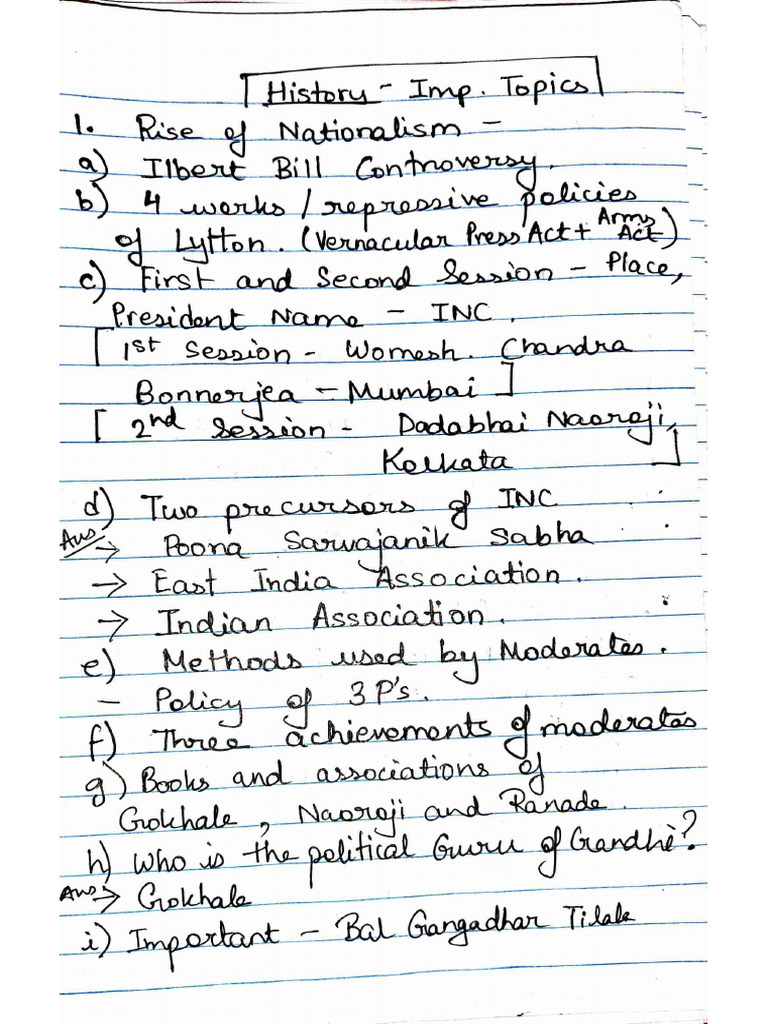 History - Imp. Topics
1. Rise of Nationalism -
a) Ilbert Bill Controversy.
b) 4 works / repressive policies
of Lytton. (Vernacular Press Act + Arms Act)
c) First and Second Session - Place,
President Name - INC.
[ 1st Session - Womesh. Chandra
Bonnerjea - Mumbai ]
[ 2nd Session - Dadabhai Naoroji,
Kolkata ]
d) Two precursors of INC
Ans → Poona Sarvajanik Sabha
→ East India Association.
→ Indian Association.
e) Methods used by Moderates.
- Policy of 3 P's.
f) Three achievements of moderates
g) Books and associations of
Gokhale, Naoroji and Ranade.
h) Who is the political Guru of Gandhi?
Ans → Gokhale
i) Important - Bal Gangadhar Tilak